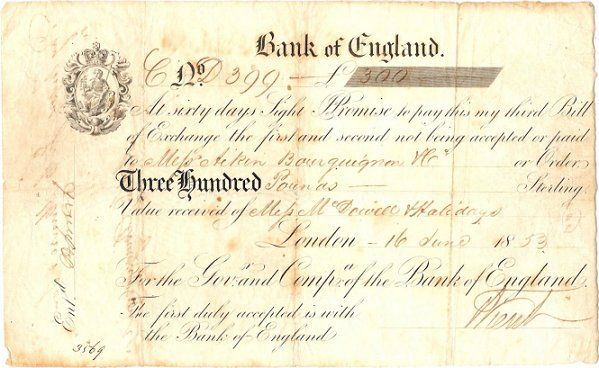 Bank of England.
C No. D 399 — £ 300
At sixty days Sight I Promise to pay this my third Bill
of Exchange the first and second not being accepted or paid
to Messrs Aitken Bourguignon & Co or Order
Three Hundred Pounds — Sterling
Value received of Mess McDowell & Halidays
London - 16 June 1853
For the Govr. and Compa. of the Bank of England
The first duly accepted is with
the Bank of England
Entd
3569